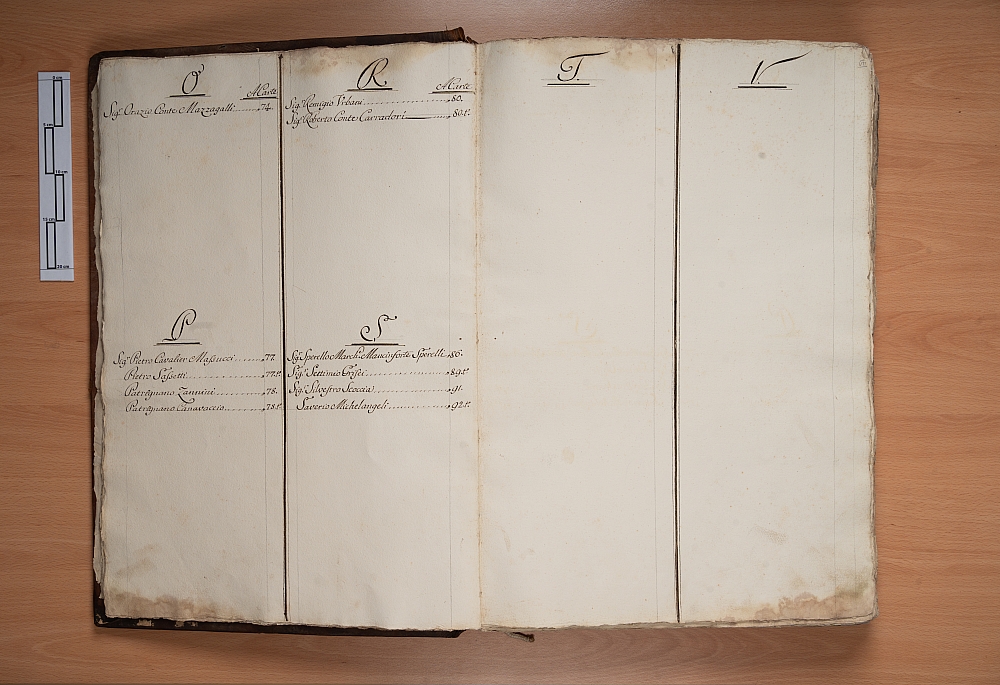 O
A Carte
Sig.r Orazio Conte Mazzagalli 74.
P
Sig.r Pietro Cavalier Massucci 77.
Pietro Sassetti 77.t.
Patregnano Zannini 78.
Patregnano Canavaccio 78.t.
R
A Carte
Sig. Remigio Urbani 80.
Sig.r Roberto Conte Carradori 80.t.
S
Sig. Sperello March. Mancinforte Sperelli 86.
Sig.r Settimio Grisei 89.t.
Sig.r Silvestro Scoccia 91.
Saverio Michelangeli 92.t.
T.
V
0 cm
5 cm
10 cm
15 cm
20 cm